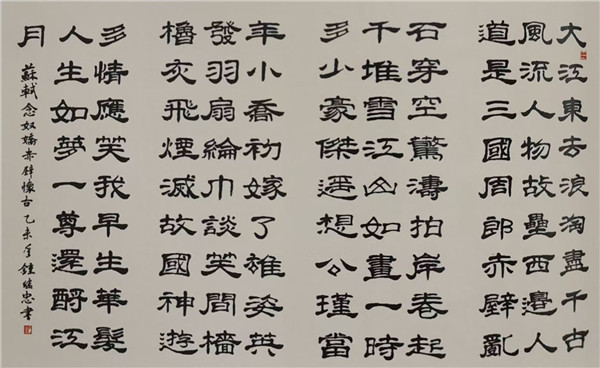 大江東去浪淘盡千古
風流人物故壘西邊人
道是三國周郎赤壁亂
石穿空驚濤拍岸卷起
千堆雪江山如畫一時
多少豪傑遥想公瑾當
年小喬初嫁了雄姿英
發羽扇綸巾談笑間檣
櫓灰飛煙滅故國神遊
多情應笑我早生華髮
人生如夢一尊還酹江
月
蘇軾念奴嬌赤壁懷古乙未年鍾忠書